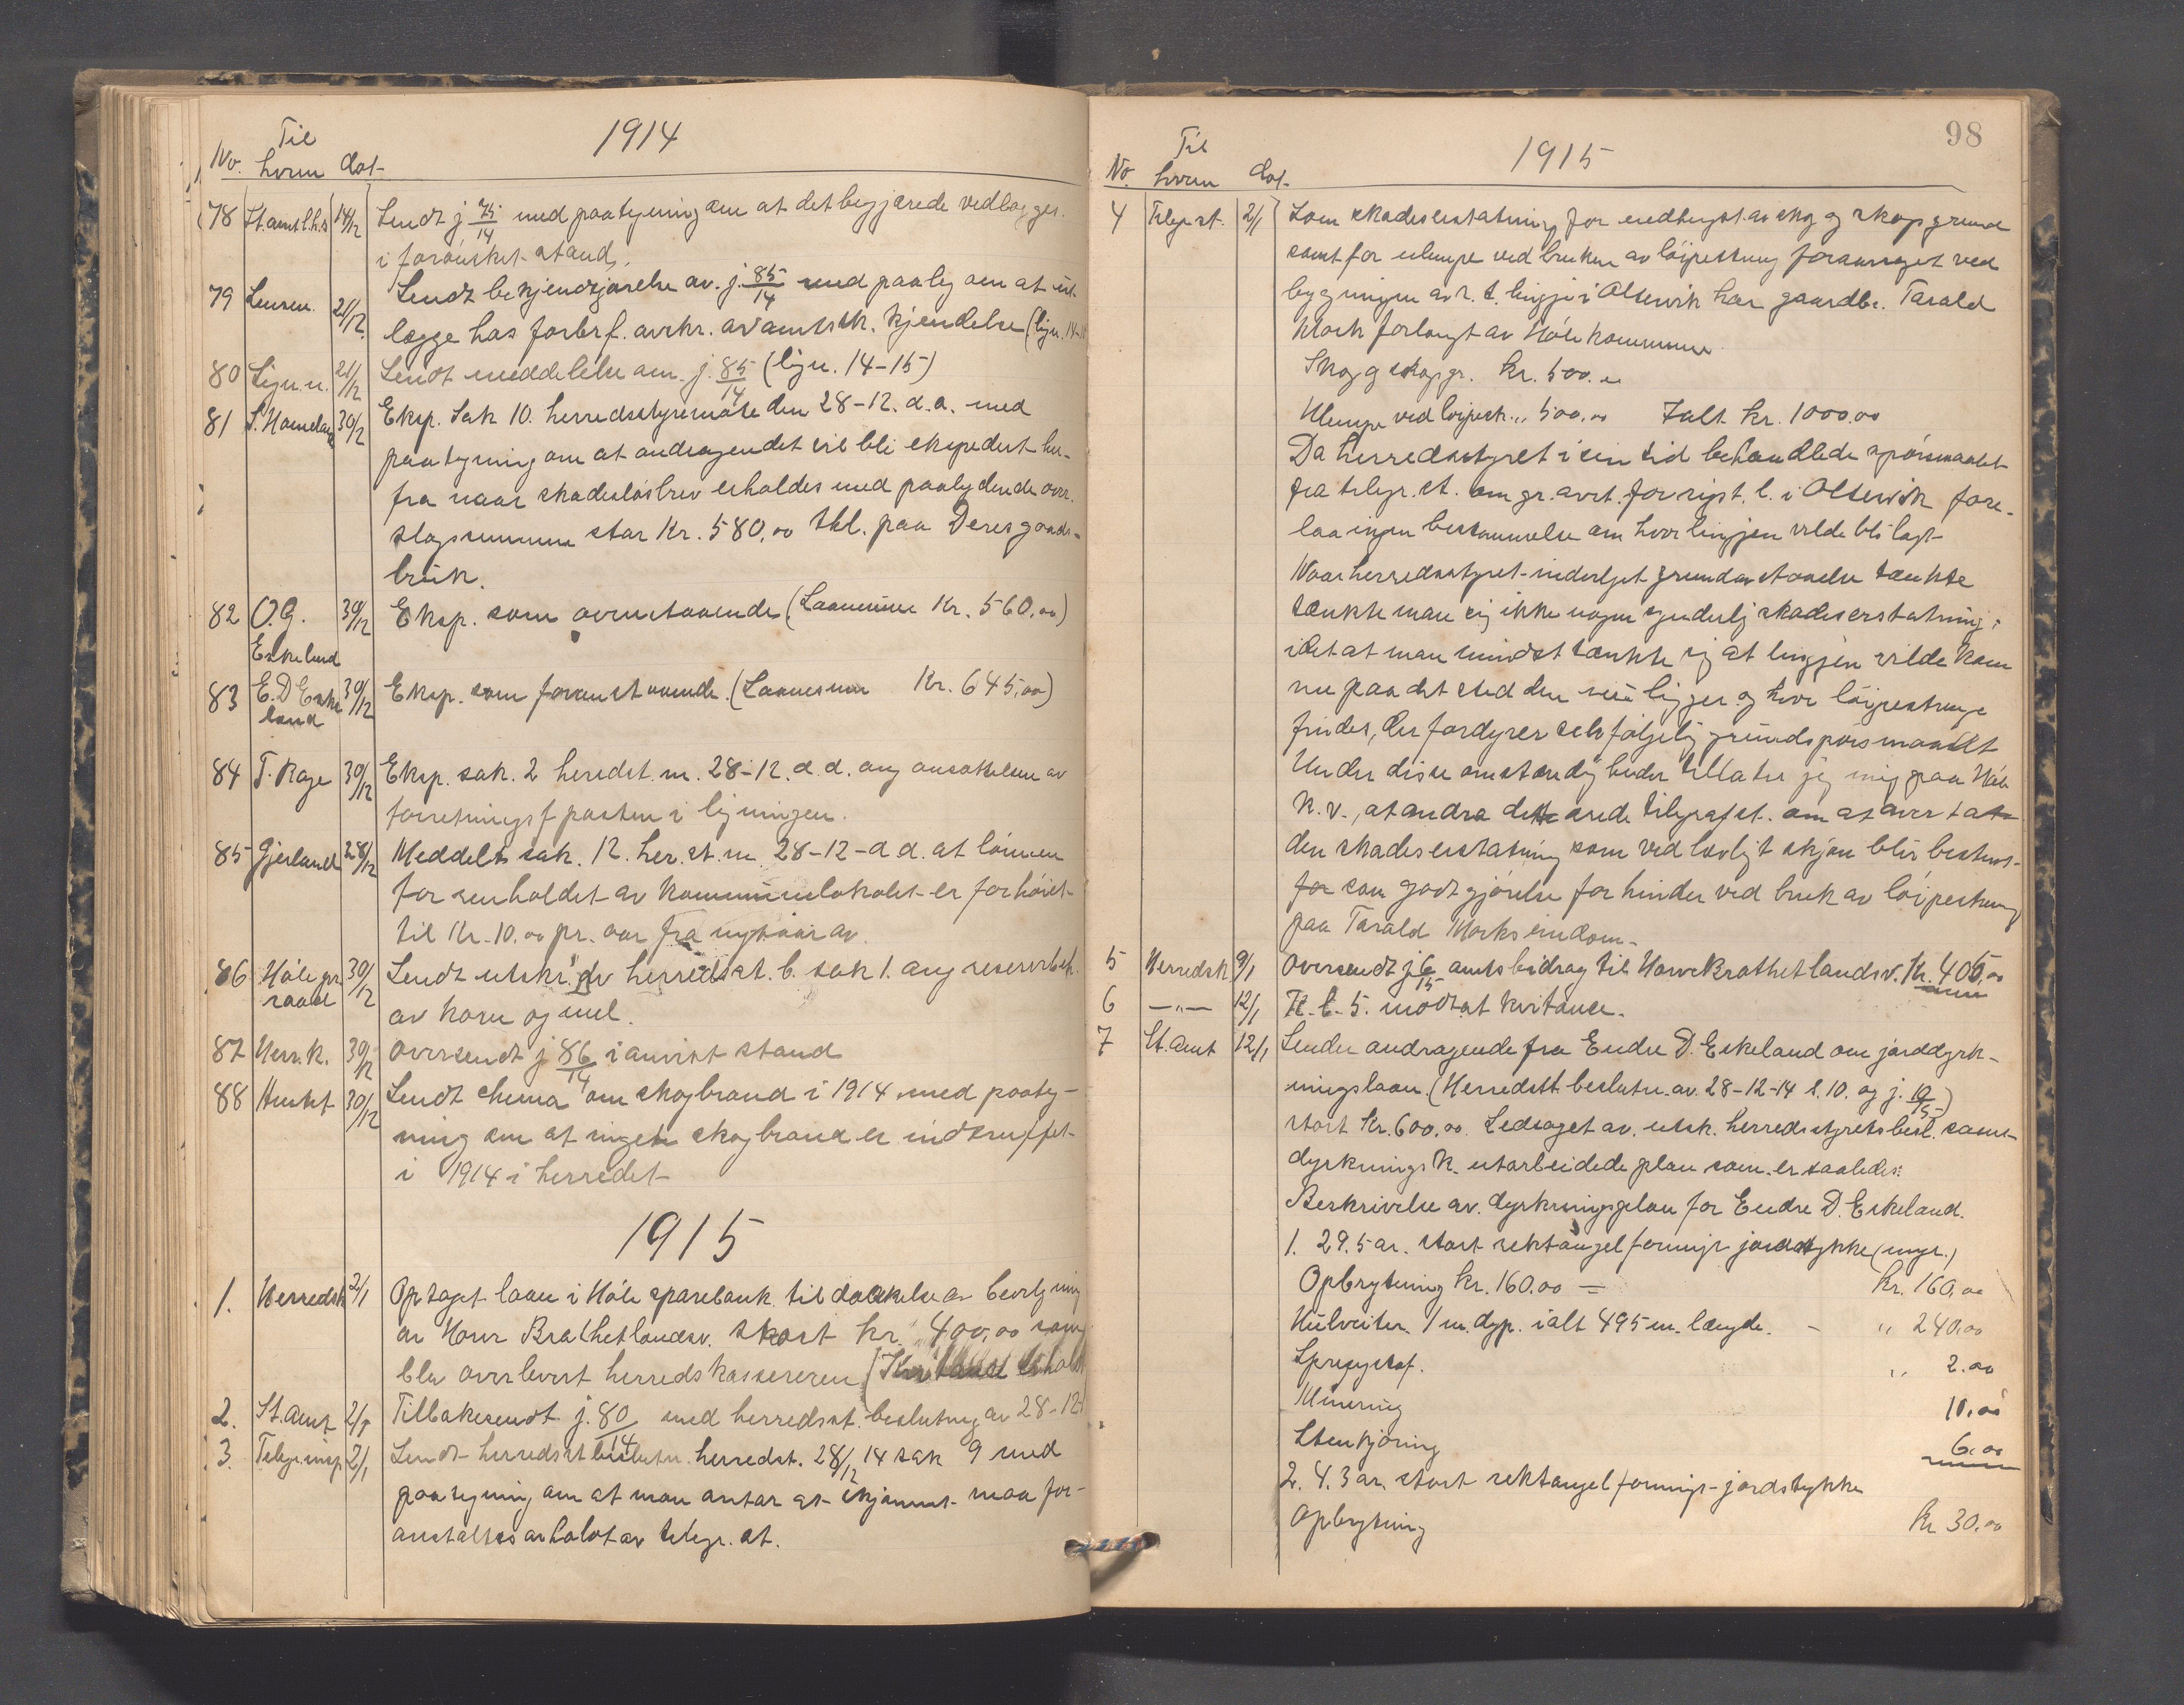 1914
Til
No. hvem dat.
78 St.amt.l.h.s 14/12 Sendt j 75/14 med paategning om at det begjærede vedlægges
i forønsket stand.
79 Lensm. 21/12 Sendt bekjendtgjørelse av j. 85/14 med paalæg om at ut-
lægge hos forbr.f. avskr. av amtssk. kjendelse (lign. 14-15
80 Lign.n. 21/12 Sendt meddelelse om j. 85/14 (lign. 14-15)
81 S. Homeland 30/12 Eksp. Sak 10. herredsstyremøte den 28-12. d.a. med
paategning om at andragendet vil bli ekspedert her-
fra naar skadesløsbrev erholdes med paalydende over-
slagssummen stor Kr. 580,00 tkl. paa Deres gaards-
bruk.
82 O.G. 30/12 Eksp. som ovenstaaende (Laanesum Kr. 560,00)
Eskeland
83 E.D Eske 30/12 Eksp. som foranstaaende. (Laanesum Kr. 645,00)
land
84 T. Rage 30/12 Eksp. sak. 2 heredst. m. 28-12. d.d. ang ansættelsen av
forretningsf posten i ligningen.
85 Gjerland 28/12 Meddelt sak. 12. her.st.m 28-12-d d. at lønnen
for renholdet av kommunelokalet er forhøiet
til Kr. 10.00 pr. aar fra nytaar av.
86 Høle fr. 30/12 Sendt utskr. av herredsst. b. sak 1. ang reservebeh.
raad av korn og mel.
87 Herr.k. 30/12 Oversendt j 86/14 i anvist stand
88 Amtet 30/12 Sendt chema om skogbrand i 1914 med paateg-
ning om at ingen skogbrand er indtruffet
i 1914 i herredet
1915
1. Herredsk 2/1 Optaget laan i Høle sparebank til dækkelse av bevilgning
av Howe Brathetlandsv. stort kr. 400,00 som
blev overlevert herredskassereren (Kvittance erholdt
2. St.amt 2/1 Tilbakesendt j. 80/14 med herredsst. beslutning av 28-12
3. Telegr.insp 2/1 Sendt herredsst beslutn. herredst. 28/12 14 sak 9 med
paategning om at man antar at skjønnet maa for-
anstaltes avholdt av telegr. st.
98
1915
Til
No. hvem dat.
4 Telegr.st. 2/1 Som skadeserstatning for medtagst. av skog og skogsgrund
samt for ulempe ved bruken av løipestreng foraarsaget ved
bygningen av r.t. linje i Oltesvik har gaardbr. Tarald
Mork forlangt av Høle kommune.
Skog g skogsgr. kr. 500.00
Ulempe ved løipestr. „ 500,00 Ialt kr. 1000.00
Da herredsstyret i sin tid behandlede spørsmaalet
fra telegr. st. om gr. avst. for rigst. l. i Oltesvik fore-
laa ingen bestemmelse om hvor linjen vilde bli lagt
Naar herredsstyret vedtok grundavstaaelse tænkte
tænkte man sig ikke nogen synderlig skadeserstatning,
idet at man mindst tænkte sig at linjen vilde kom
me paa det sted den nu ligger og hvor løipestrenge
findes, der fordyrer selvfølgelig grundspørsmaalet
Under disse omstændigheder tillater jeg mig paa Høle
K.v., at andra det ærede telegrafst. om at overta
den skadeserstatning som ved lovligt skjøn blir bestemt
for som godtgjørelse for hinder ved bruk av løipestreng
paa Tarald Morks eiendom.
5 Herredsk 9/1 Oversendt j 6/15 amtsbidrag til Howe Brathetlandsv. Kr. 405,00
6 —„— 12/1 Tl. t. 5. mottat kvitance.
7 St. Amt 12/1 Sender andragende fra Endre D. Eskeland om jorddyrk-
ningslaan (Herredstt. beslutn. av. 28-12-14 s. 10. og j. 10/15)
stort Kr. 600.00. Ledsaget av. utsk. herredsstyrets besl. samt
dyrknings K. utarbeidede plan som er saaledes:
Beskrivelse av. dyrkningsplan for Endre D. Eskeland.
1. 29.5 ar. stort rektangelformigt jordstykke (myr.)
Opbrytning kr. 160.00 = Kr. 160,00
Hulveiter 1 m. dyp. ialt 495 m. længde. - „ 240,00
Sprengstof. „ 2.00
Minering 10.00
Stenkjøring 6.00
2. 4.3 ar. stort rektangelformigt jordstykke
Opbrytning Kr 30.00